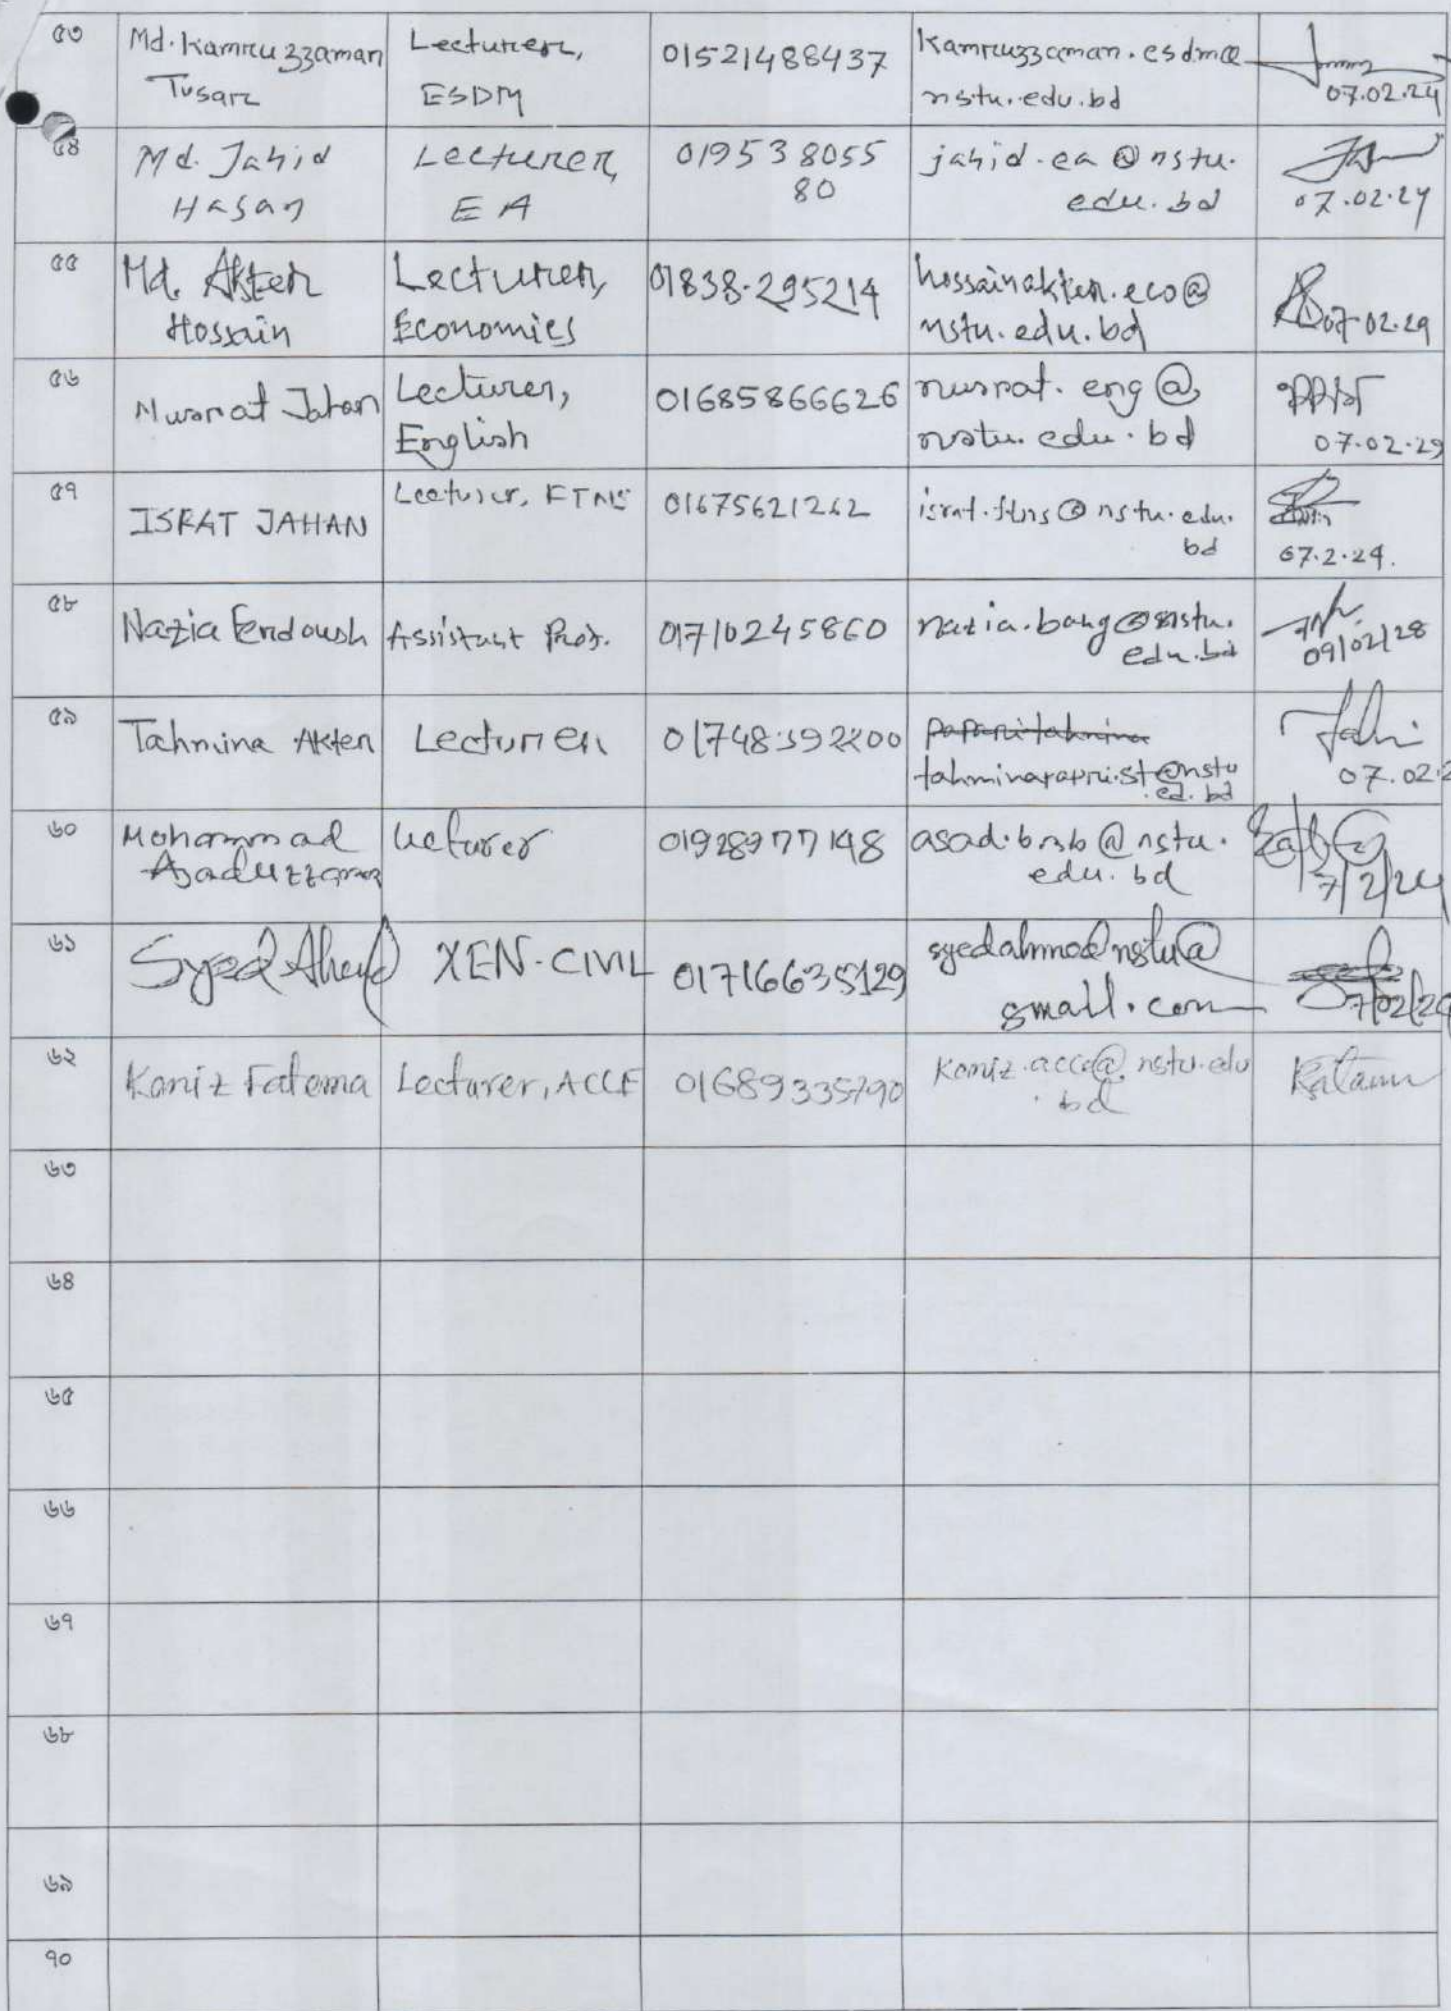 ৫৩
Md. Kamruzzaman
Tusar
Lecturer,
ESDM
01521488437
Kamruzzaman.esdm@
nstu.edu.bd
07.02.24
৫৪
Md. Jahid
Hasan
Lecturer,
EA
019538055
80
jahid.ea@nstu.
edu.bd
07.02.24
৫৫
Md. Akter
Hossain
Lecturer,
Economics
01838-295214
hossainakter.eco@
nstu.edu.bd
07.02.24
৫৬
Nusrat Jahan
Lecturer,
English
01685866626
nusrat.eng@
nstu.edu.bd
07.02.24
৫৭
ISRAT JAHAN
Lecturer, FTNS
01675621262
israt.ftns@nstu.edu.
bd
07.2.24.
৫৮
Nazia Ferdoush
Assistant Prof.
01710245860
nazia.bang@nstu.
edu.bd
০৭/০২/২৪
৫৯
Tahmina Akter
Lecturer
01748592200
tahminapapri.st@nstu
.ed.bd
07.02.2
৬০
Mohammad
Asaduzzaman
Lecturer
01928977148
asad.bmb@nstu.
edu.bd
7/2/24
৬১
Syed Ahmed
XEN-CIVIL
01716635129
syedahmednstu@
gmail.com
7/02/24
৬২
Kaniz Fatema
Lecturer, ACCE
01689335790
Kaniz.acce@nstu.edu
.bd
৬৩
৬৪
৬৫
৬৬
৬৭
৬৮
৬৯
৭০